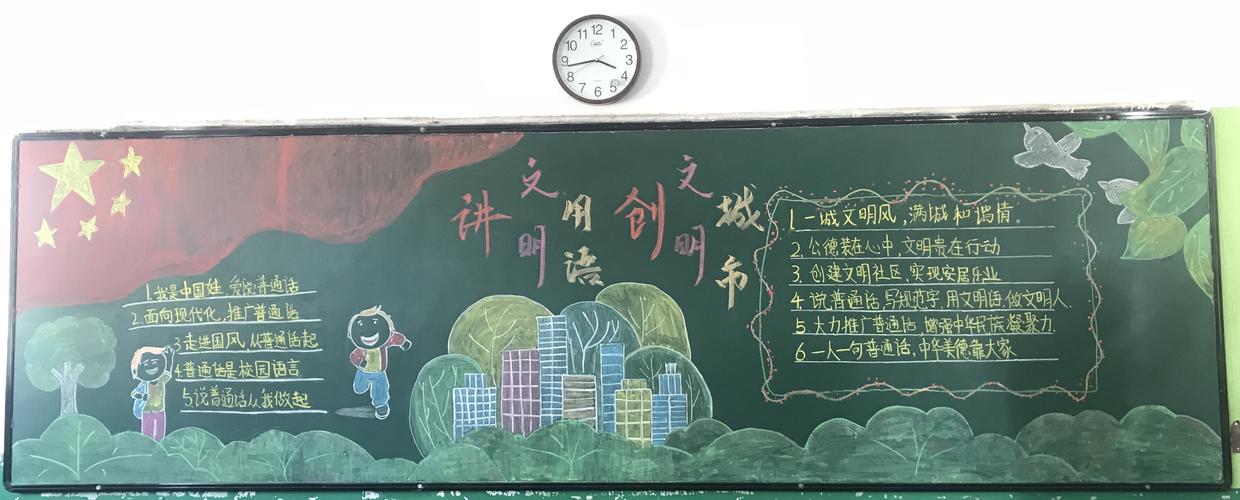 12
1
2
3
4
5
6
7
8
9
10
11
讲文明用语 创文明城市
1.我是中国娃,爱说普通话
2.面向现代化,推广普通话
3走进国风,从普通话起
4普通话是校园语言
5.说普通话从我做起
1.一城文明风,满城和谐情。
2.公德装在心中,文明贵在行动
3.创建文明社区,实现安居乐业
4 说普通话,写规范字,用文明语,做文明人.
5 大力推广普通话 增强中华民族凝聚力.
6一人一句普通话,中华美德靠大家